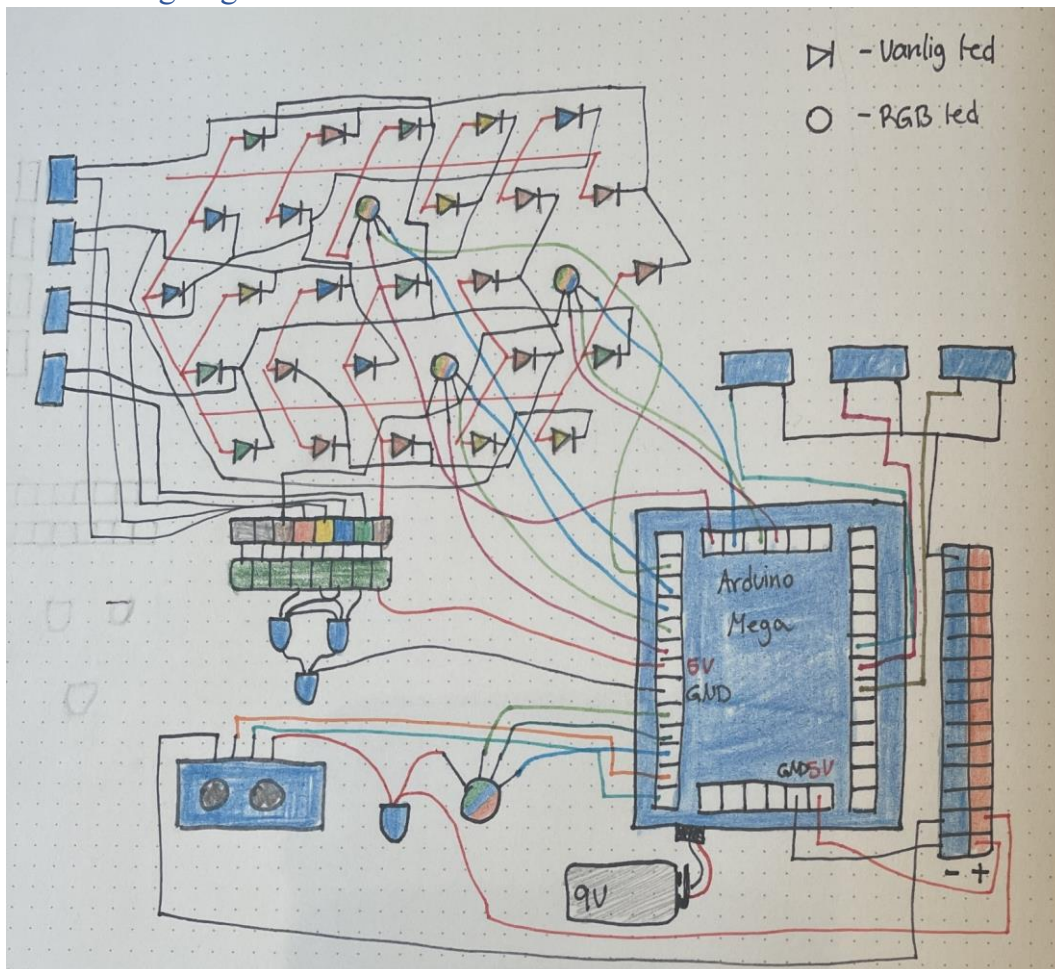 - Vanlig led
- RGB led
Arduino
Mega
5V
GND
GND 5V
9V
- +